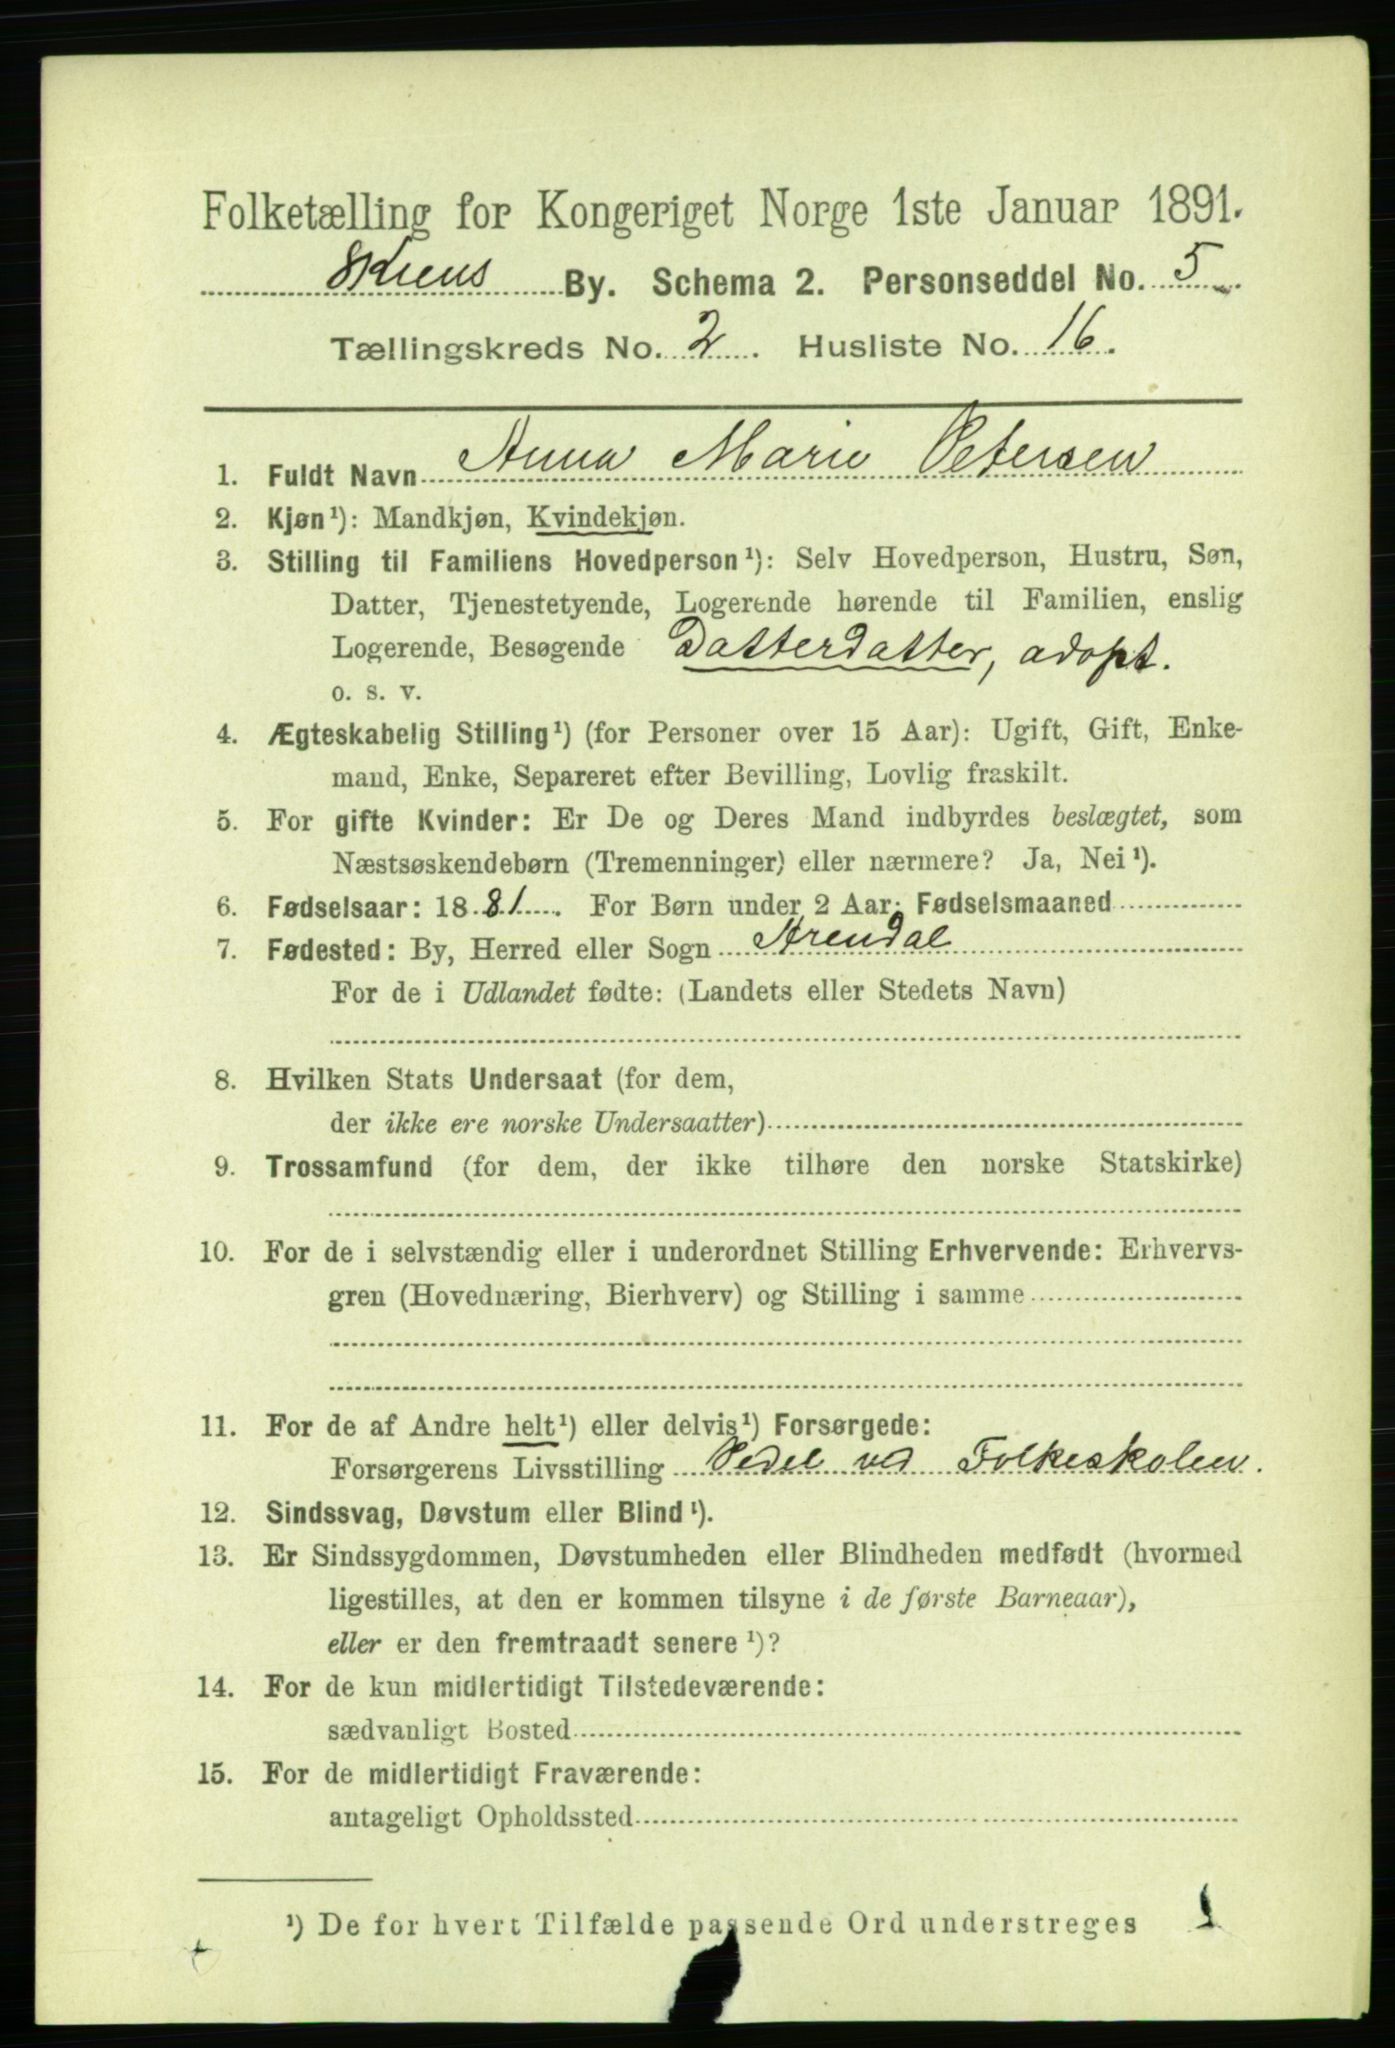 Folketælling for Kongeriget Norge 1ste Januar 1891.
Skiens By. Schema 2. Personseddel No. 5
Tællingskreds No. 2. Husliste No. 16.
1. Fuldt Navn Anna Marie Petersen
2. Kjøn¹): Mandkjøn, Kvindekjøn.
3. Stilling til Familiens Hovedperson¹): Selv Hovedperson, Hustru, Søn,
Datter, Tjenestetyende, Logerende hørende til Familien, enslig
Logerende, Besøgende Datterdatter, adopt.
o. s. v.
4. Ægteskabelig Stilling¹) (for Personer over 15 Aar): Ugift, Gift, Enke-
mand, Enke, Separeret efter Bevilling, Lovlig fraskilt.
5. For gifte Kvinder: Er De og Deres Mand indbyrdes beslægtet, som
Næstsøskendebørn (Tremenninger) eller nærmere? Ja, Nei¹).
6. Fødselsaar: 1881. For Børn under 2 Aar: Fødselsmaaned
7. Fødested: By, Herred eller Sogn Arendal
For de i Udlandet fødte: (Landets eller Stedets Navn)
8. Hvilken Stats Undersaat (for dem,
der ikke ere norske Undersaatter)
9. Trossamfund (for dem, der ikke tilhøre den norske Statskirke)
10. For de i selvstændig eller i underordnet Stilling Erhvervende: Erhvervs-
gren (Hovednæring, Bierhverv) og Stilling i samme
11. For de af Andre helt¹) eller delvis¹) Forsørgede:
Forsørgerens Livsstilling Pedel ved Folkeskolen.
12. Sindssvag, Døvstum eller Blind¹).
13. Er Sindssygdommen, Døvstumheden eller Blindheden medfødt (hvormed
ligestilles, at den er kommen tilsyne i de første Barneaar),
eller er den fremtraadt senere¹)?
14. For de kun midlertidigt Tilstedeværende:
sædvanligt Bosted
15. For de midlertidigt Fraværende:
antageligt Opholdssted
¹) De for hvert Tilfælde passende Ord understreges